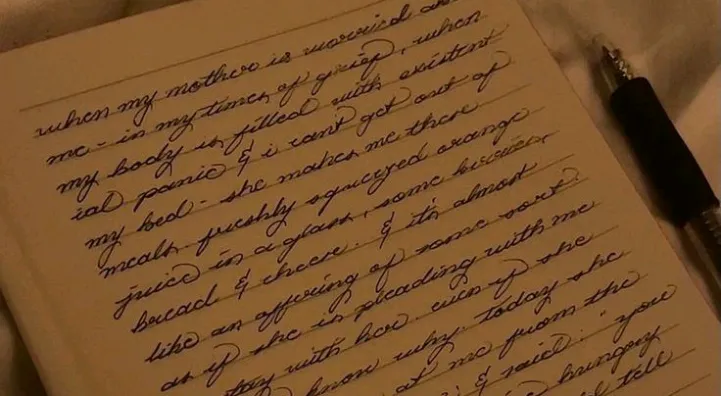 when my mother is worried ab
me - in my times of grief, when
my body is filled with existent
ial panic & i can't get out of
my bed - she makes me these
meals. freshly squeezed orange
juice in a glass, some berries,
bread & cheese. & it's almost
like an offering of some sort
as if she is pleading with me
to stay with her. even if she
know why. today she
at me from the
& said: "you
hungry
tell